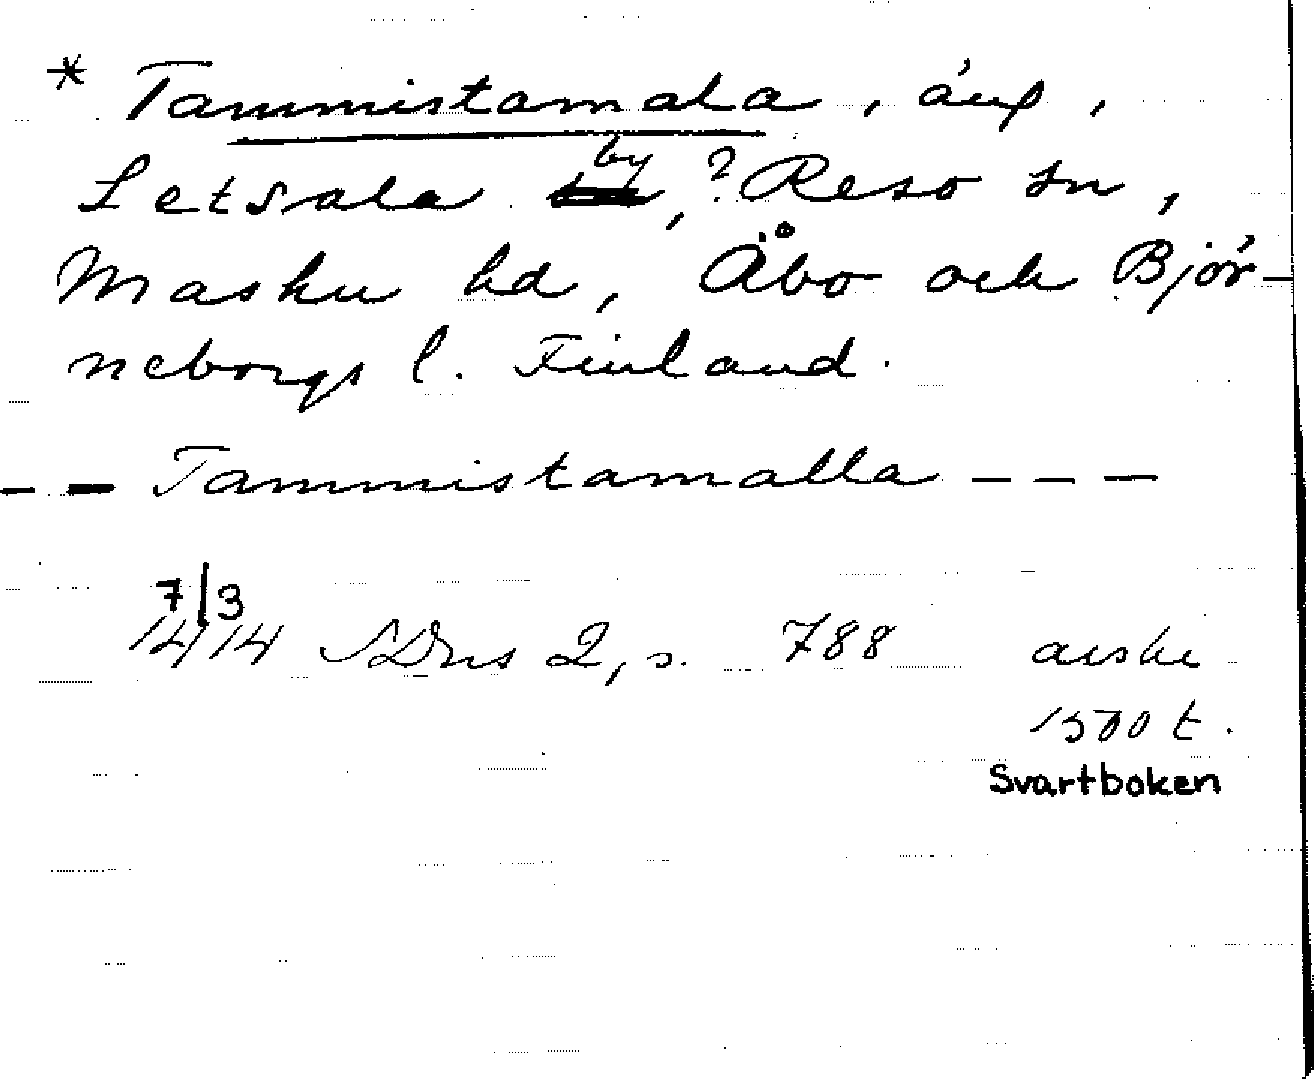 * Tammistamala, äng,
Letsala by, ? Reso sn,
Masku hd, Åbo och Björ-
neborgs l. Finland.
-- Tammistamalla ---
7/3
1414 SDns 2, s. 788 avskr
1500 t.
Svartboken